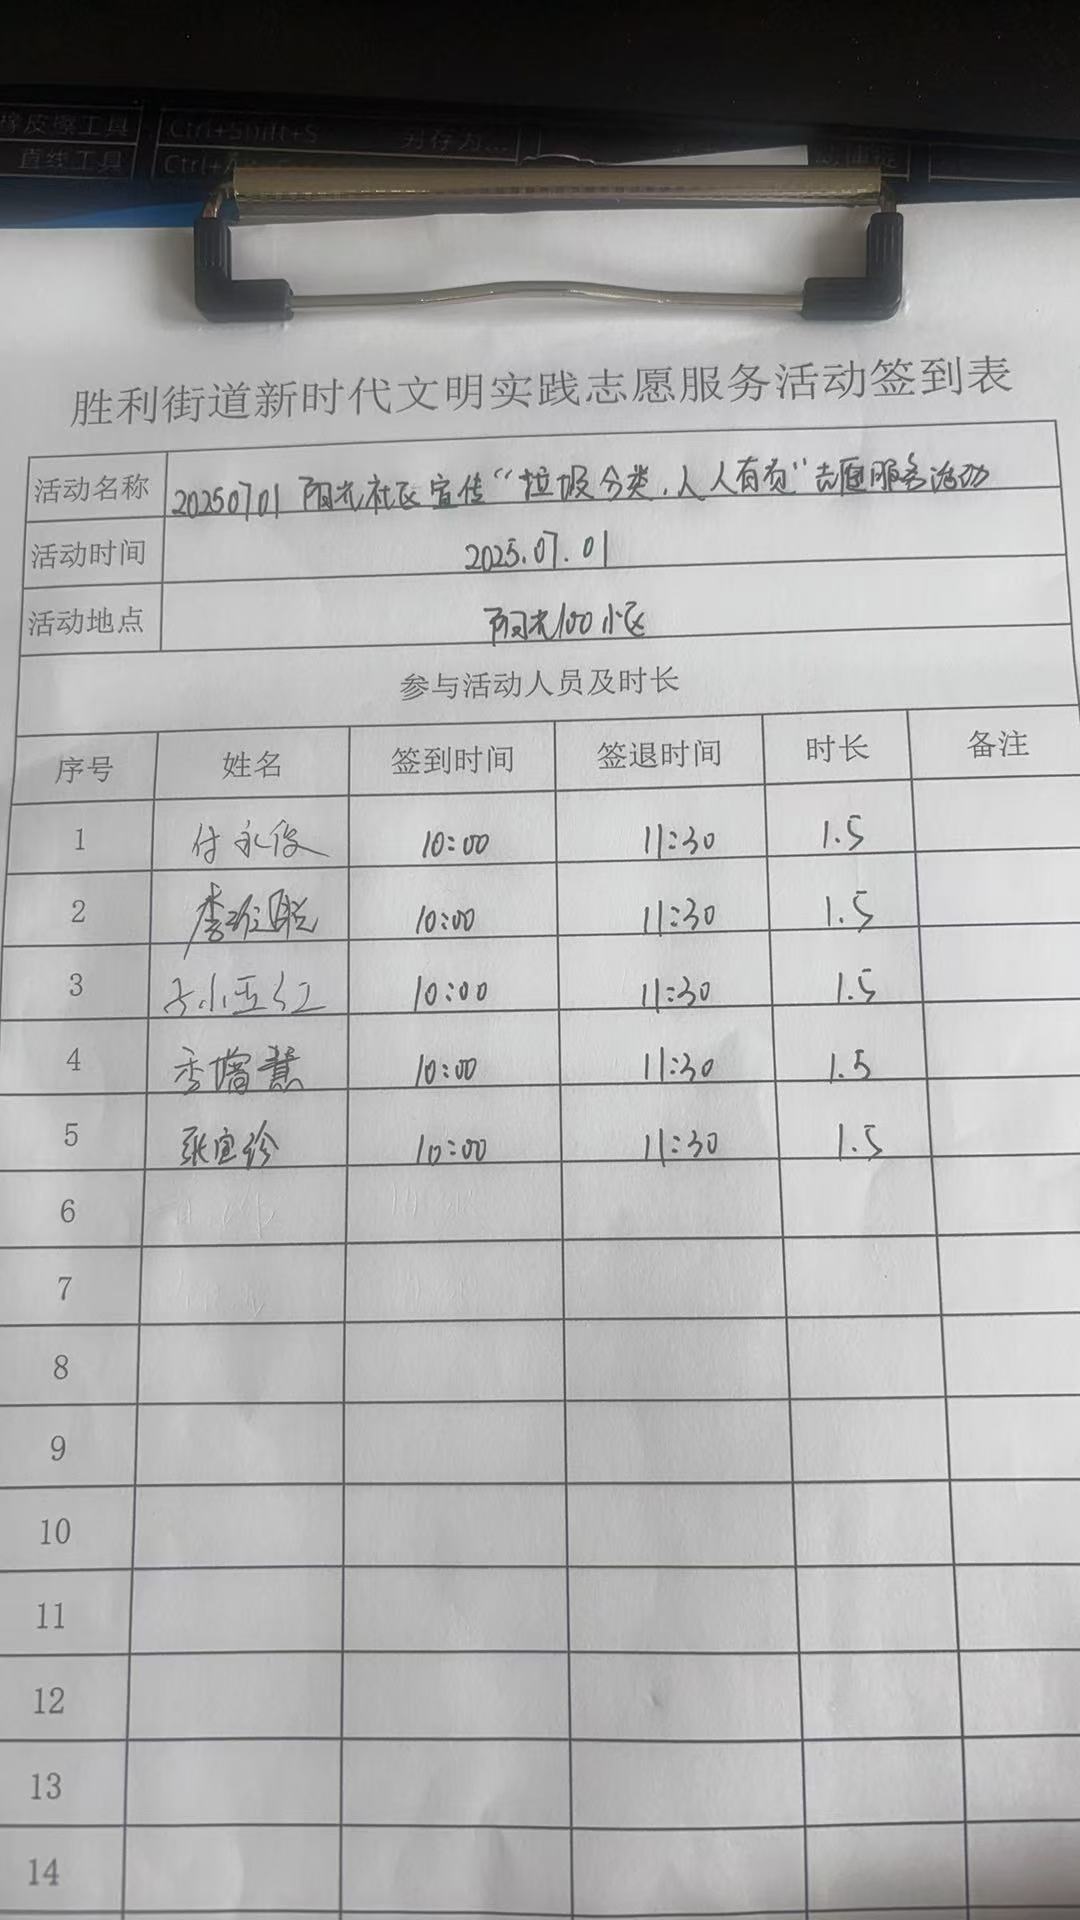 橡皮擦工具 Ctrl+Shift+S 另存为...
直线工具
胜利街道新时代文明实践志愿服务活动签到表
活动名称 20250701阳光社区宣传“垃圾分类,人人有责”志愿服务活动
活动时间 2025.07.01
活动地点 阳光100小区
参与活动人员及时长
序号 姓名 签到时间 签退时间 时长 备注
1 付永俊 10:00 11:30 1.5
2 10:00 11:30 1.5
3 孙玉红 10:00 11:30 1.5
4 李增慧 10:00 11:30 1.5
5 张宜珍 10:00 11:30 1.5
6
7
8
9
10
11
12
13
14